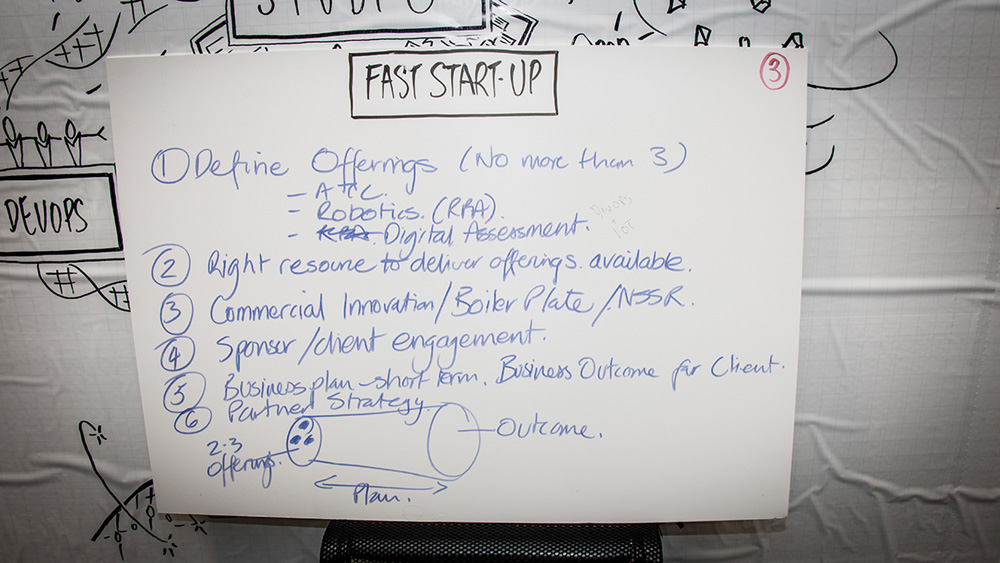 STUDIO
FAST START-UP
3
DEVOPS
① Define Offerings (No more than 3)
- ATC.
- Robotics. (RPA).
- Digital Assessment.
DEVOPS
IOT
② Right resource to deliver offerings available.
③ Commercial Innovation / Boiler Plate / NSSR.
④ Sponsor / client engagement.
⑤ Business plan - short term. Business Outcome for Client.
⑥ Partner Strategy.
2-3
Offerings.
Outcome.
Plan.